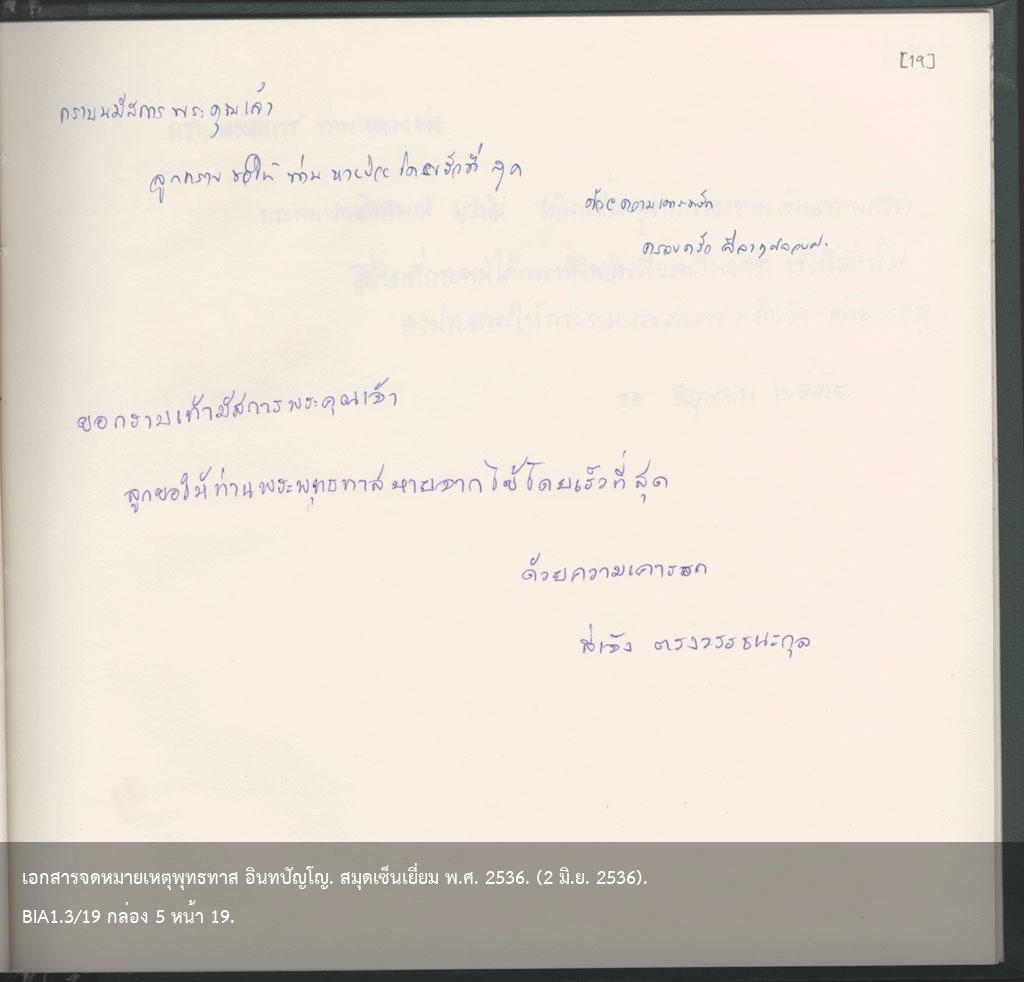 [19]
กราบนมัสการ พระคุณเจ้า
ลูกกราบ ขอให้ ท่าน หายป่วย โดยเร็วที่ สุด
ด้วยความเคารพรัก
ครอบครัว
ขอกราบเท้ามัสการพระคุณเจ้า
ลูกขอให้ท่านพระพุทธทาส หายจากไข้โดยเร็วที่สุด
ด้วยความเคารพ
ตรงวรรธนะกุล
เอกสารจดหมายเหตุพุทธทาส อินทปัญโญ. สมุดเซ็นเยี่ยม พ.ศ. 2536. (2 มิ.ย. 2536).
BIA1.3/19 กล่อง 5 หน้า 19.